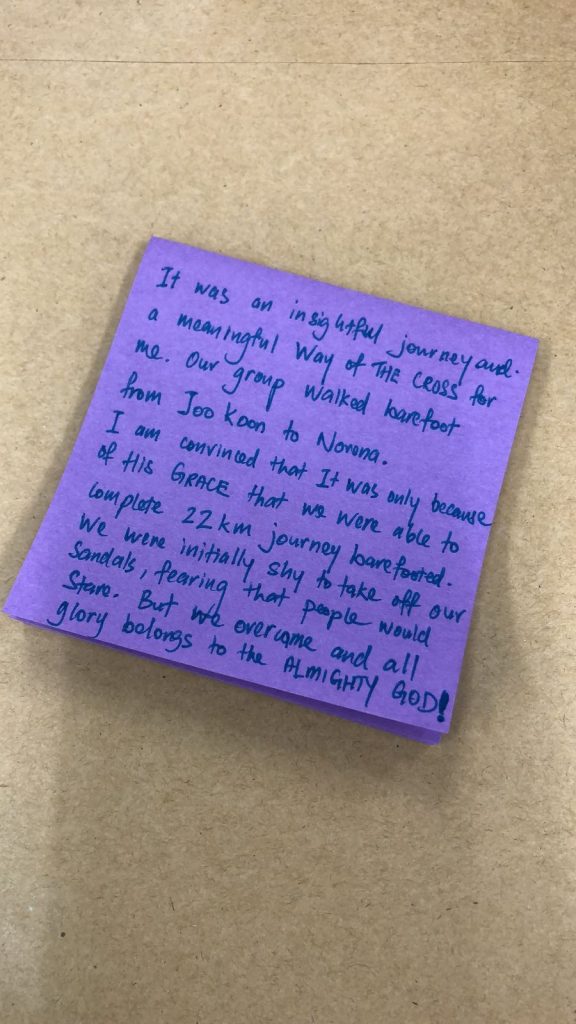 It was an insightful journey and.
a meaningful Way of THE CROSS for
me. Our group walked barefoot
from Joo Koon to Novena.
I am convinced that It was only because
of His GRACE that we were able to
complete 22km journey barefooted.
We were initially shy to take off our
Sandals, fearing that people would
stare. But we overcome and all
glory belongs to the ALMIGHTY GOD!